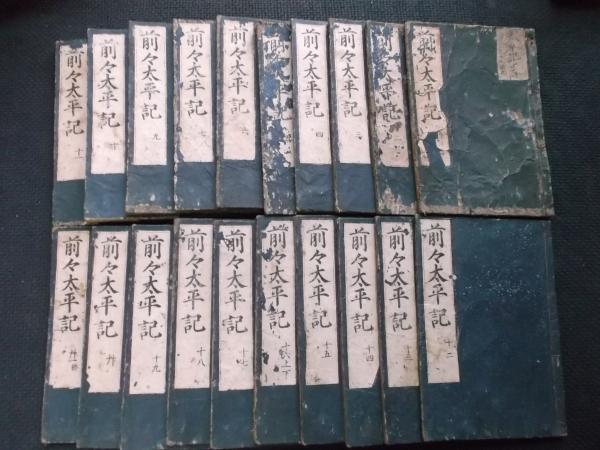 前々太平記
前々太平記
前々太平記 三
前々太平記 四
太平記
前々太平記 六
前々太平記 七
前々太平記 九
前々太平記 十
前々太平記 十一
前々太平記 十二
前々太平記 十三
前々太平記 十四
前々太平記 十五
前々太平記 十六上下
前々太平記 十七
前々太平記 十八
前々太平記 十九
前々太平記 廿
前々太平記 廿一終